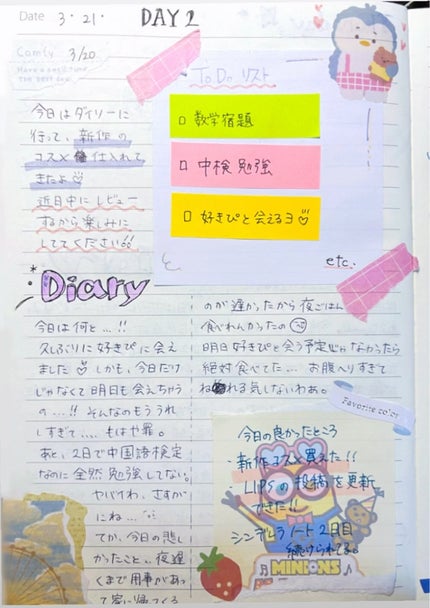 Date 3・21・ DAY 2
Comfy 3/20
Have a
今日はダイソーに
行って、新作の
コスメ仕入れて
きたよ
近日中にレビュー
するから楽しみに
しててください!!
ToDoリスト
□ 数学宿題
□ 中検 勉強
□ 好きぴと会えるヨ
etc.
Diary
今日は何と...!!
久しぶりに好きぴに会え
ました♡しかも、今日だけ
じゃなくて明日も会えちゃう
の...!! そんなのもううれ
しすぎて.... もはや罪。
あと、2日で中国語検定
なのに全然勉強してない。
ヤバイわ、さすが
にね...
てか、今日の悲し
かったこと。夜遅
くまで用事があっ
て家に帰ってくる
のが遅かったから夜ごはん
食べれんかったの
明日好きぴと会う予定じゃなかったら
絶対食べてた... お腹へりすぎて
ねれる気しないわぁ。
Favorite color
今日の良かったところ
・新作コスメ買えた!!
LIPSの投稿を更新
できた!!
シンデレラノート2日目
続けられてる。
MINIONS